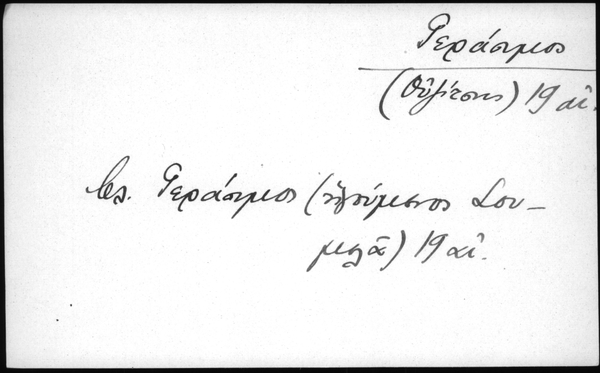 Γεράσιμος
(Οὔζιτσης) 19 αἰ.
βλ. Γεράσιμος (ἡγούμενος Σου-
μελᾶ) 19 αἰ.